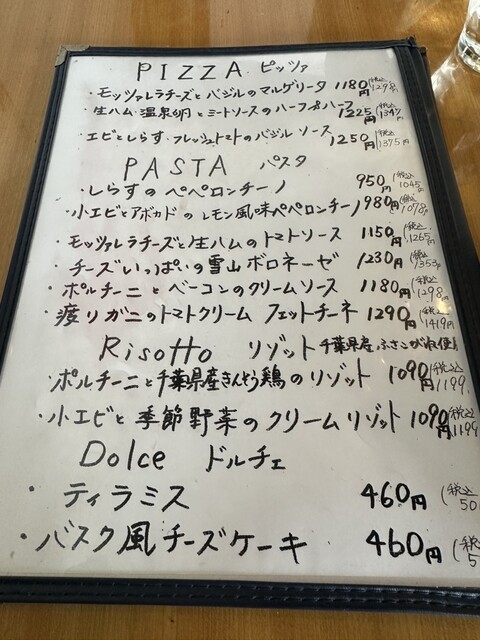 PIZZA ピッツァ
・モッツァレラチーズとバジルのマルゲリータ 1180円(税込1298
・生ハム・温泉卵とミートソースのハーフ&ハーフ 1225円(税込1347
・エビとしらす・フレッシュトマトのバジルソース 1250円(税込1375円
PASTA パスタ
・しらすのペペロンチーノ 950円(税込1045円
・小エビとアボカドのレモン風味ペペロンチーノ 980円(税込1078円
・モッツァレラチーズと生ハムのトマトソース 1150円(税込1265円
・チーズいっぱいの雪山ボロネーゼ 1230円(税込1353円
・ポルチーニとベーコンのクリームソース 1180円(税込1298円
・渡りガニのトマトクリーム フェットチーネ 1290円(税込1419円
Risotto リゾット 千葉県産ふさこがね使用
・ポルチーニと千葉県産きんそう鶏のリゾット 1090円(税込1199
・小エビと季節野菜のクリームリゾット 1090円(税込1199
Dolce ドルチェ
・ティラミス 460円(税込50
・バスク風チーズケーキ 460円(税込5